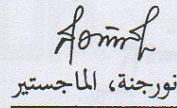 نورجنة، الماجستير